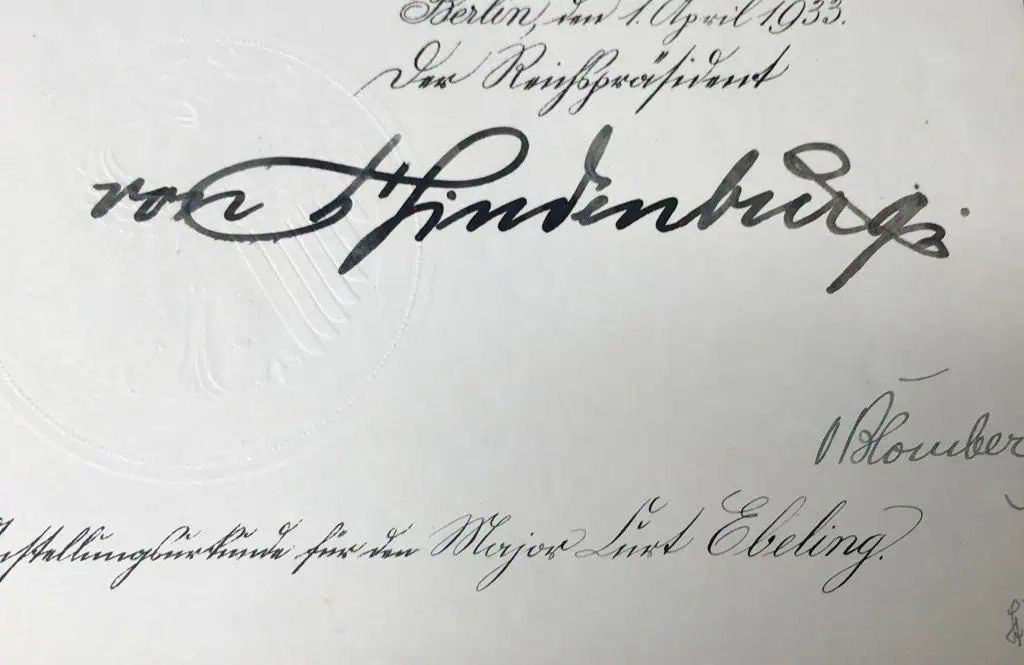 Berlin, den 1. April 1933.
Der Reichspräsident
von Hindenburg
v Blomber
nstellungsurkunde für den Major Curt Ebeling.